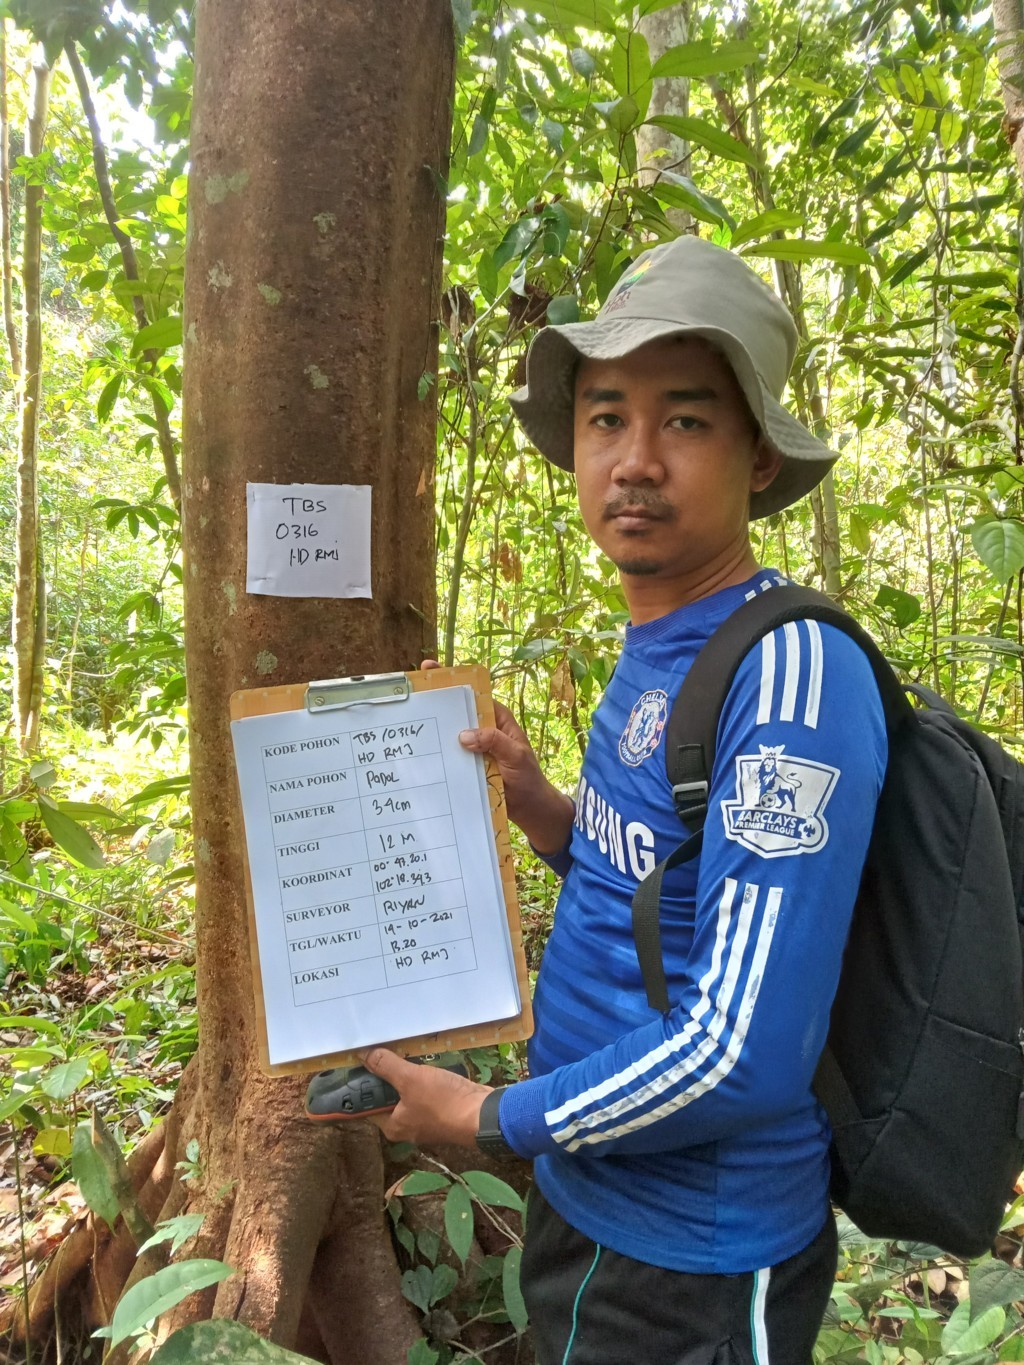 TBS
0316
HD RMJ
KODE POHON TBS /0316/
HD RMJ
NAMA POHON POPOL
DIAMETER 34cm
TINGGI 12 M
KOORDINAT 00° 43.20.1
102° 18.343
SURVEYOR RIYAN
TGL/WAKTU 19-10-2021
13.20
LOKASI HD RMJ
CHELSEA
FOOTBALL CLUB
SUNG
BARCLAYS
PREMIER LEAGUE